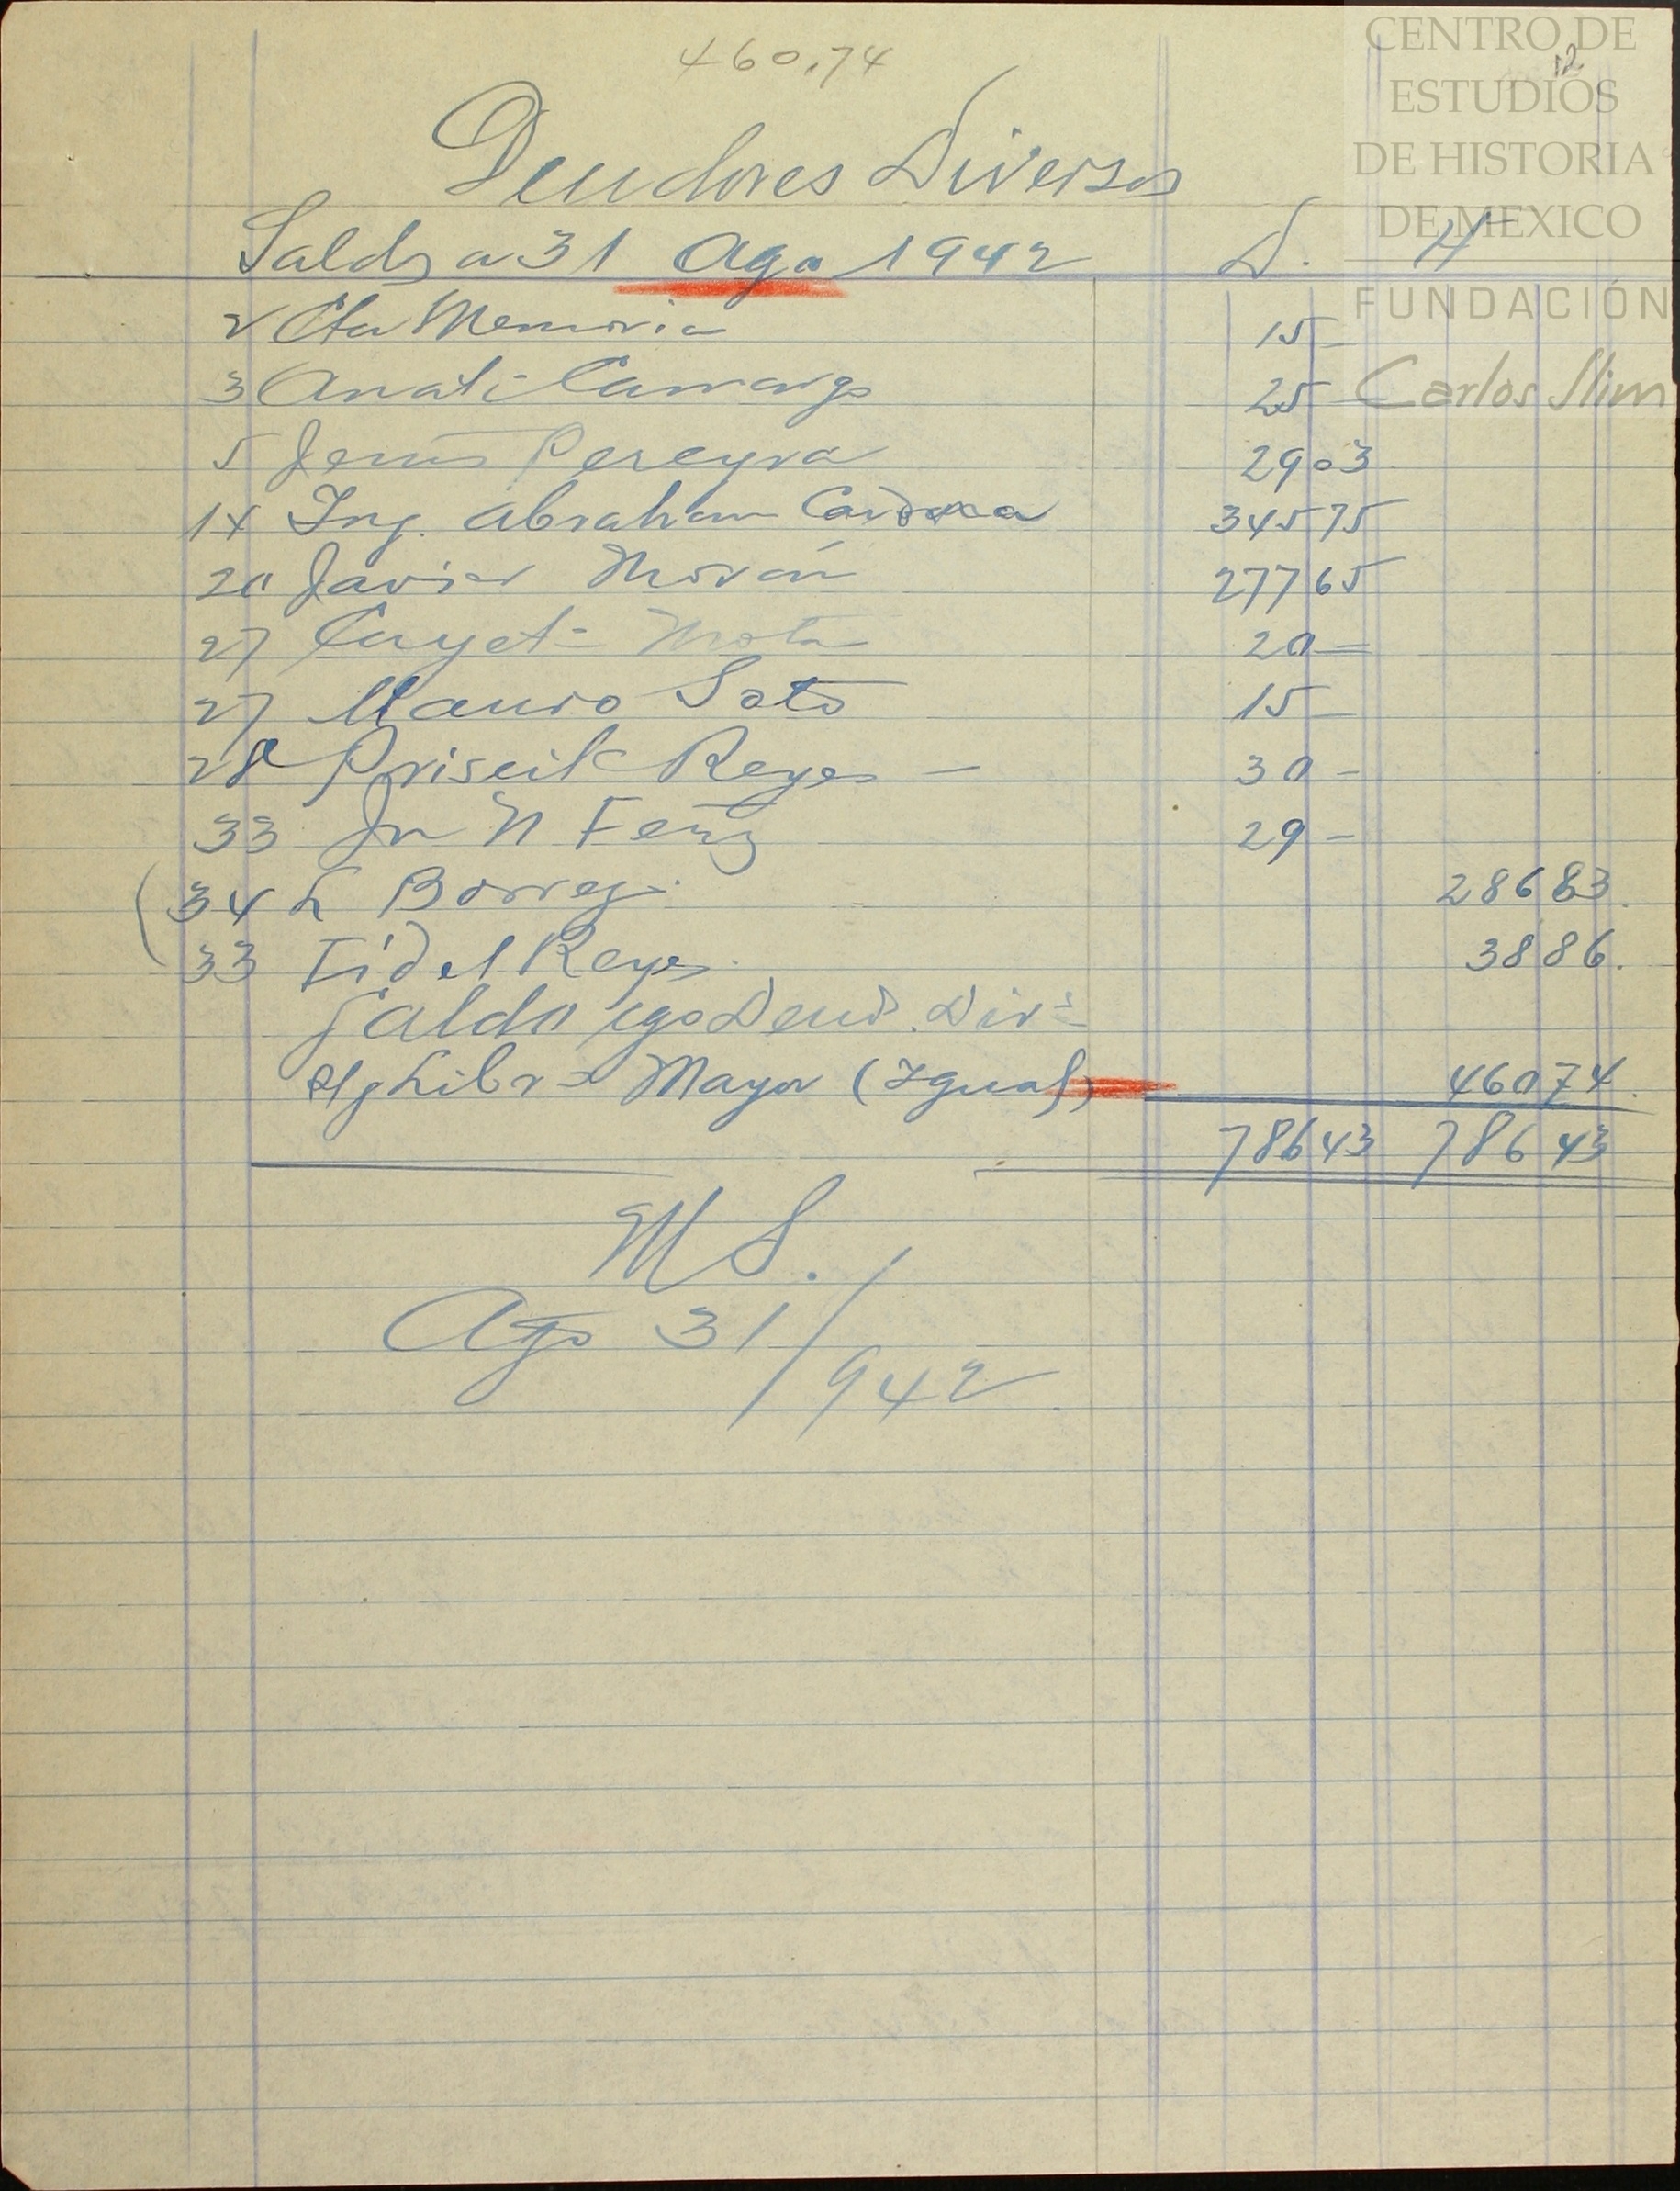 460.74
12
Deudores Diversos
Saldos a 31 Ago 1942 D. H
2 Cta Memoria 15 —
3 Anat- Camargo 25 —
5 Jesús Pereyra 29 03
14 Ing. Abraham Cardona 345 75
20 Javier Morán 277 65
27 Cayet- Mota 20 —
27 Mauro Soto 15 —
28 Priscil- Reyes — 30 —
33 Jn N Ferz 29 —
(34 L Borrego. 286 83.
33 Fidel Reyes. 38 86.
Saldo Deud. Divs
Libro Mayor (Igual) 460 74.
786 43 786 43
M S.
Ago 31/942.
CENTRO DE
ESTUDIOS
DE HISTORIA
DE MEXICO
FUNDACIÓN
Carlos Slim